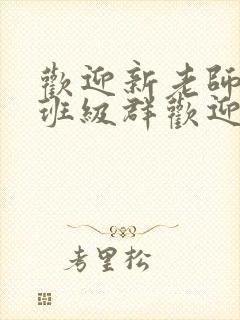 歡迎新老師
班級群歡迎
考里松